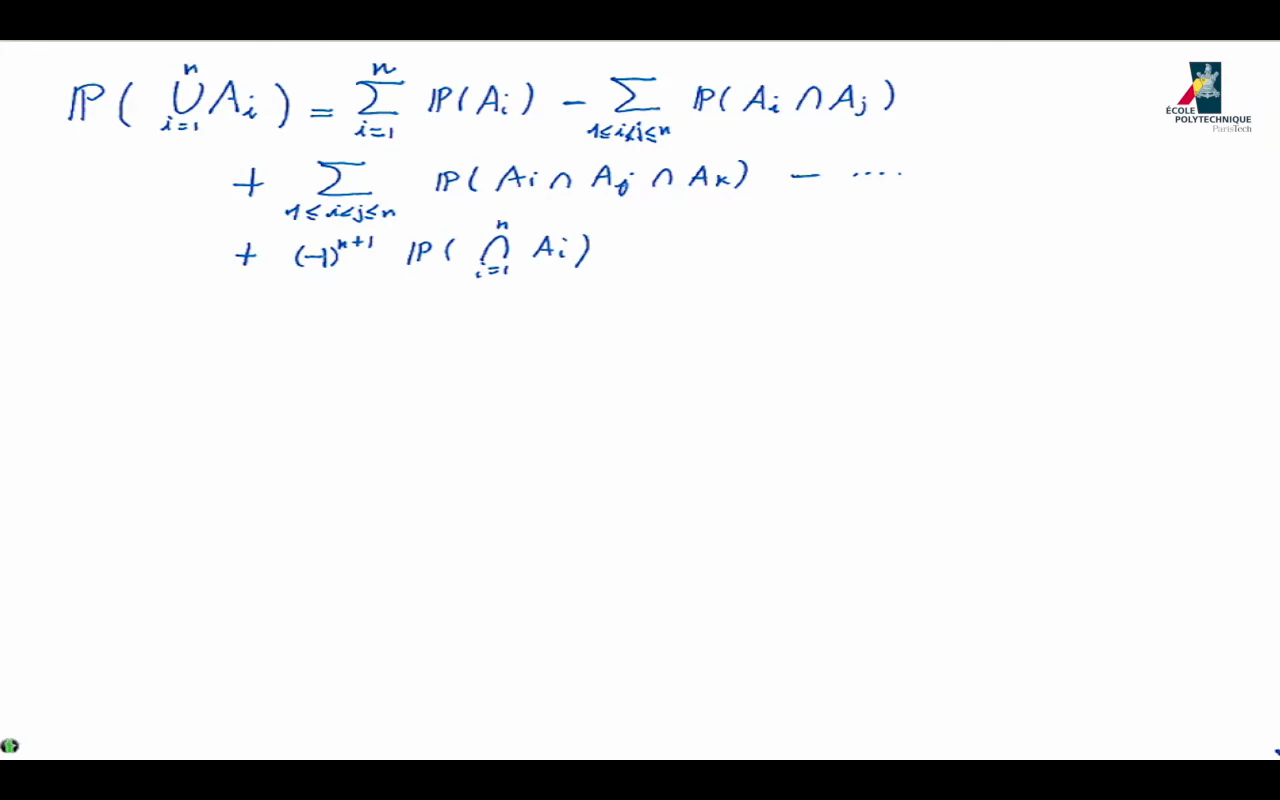 ℙ( ⋃_{i=1}^{n} A_i ) = ∑_{i=1}^{n} ℙ(A_i) − ∑_{1≤i<j≤n} ℙ( A_i ∩ A_j )
+ ∑_{1≤i<j≤n} ℙ( A_i ∩ A_j ∩ A_k ) − ....
+ (−1)^{n+1} ℙ( ⋂_{i=1}^{n} A_i )
ÉCOLE
POLYTECHNIQUE
ParisTech